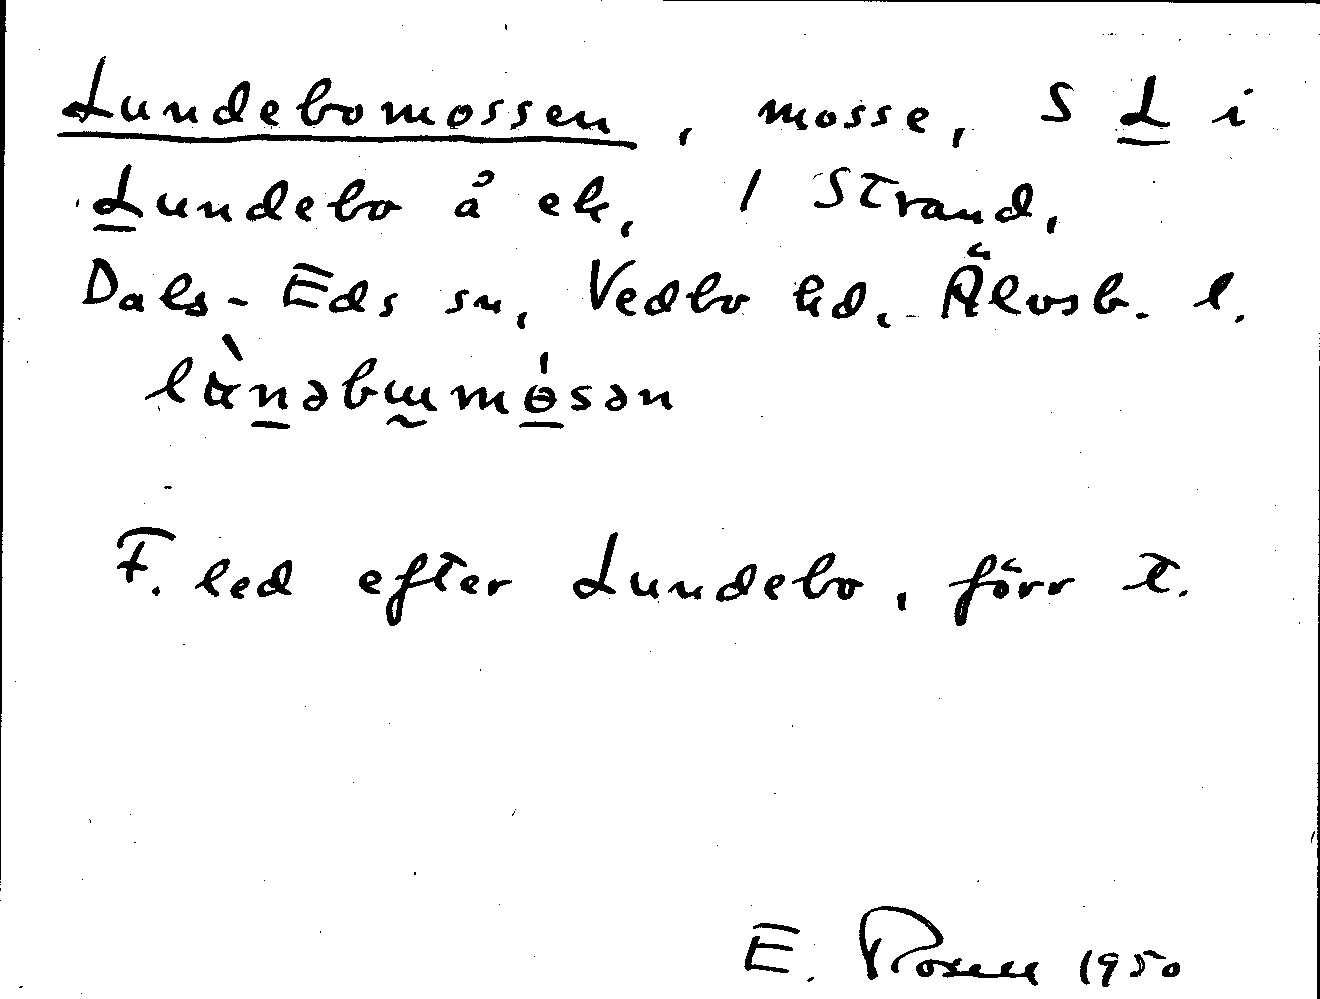 Lundebomossen, mosse, S L i
Lundebo å ek, 1 Strand,
Dals-Eds sn, Vedbo hd, Älvsb. l.
F. led efter Lundebo, förr t.
E. Rosell 1950